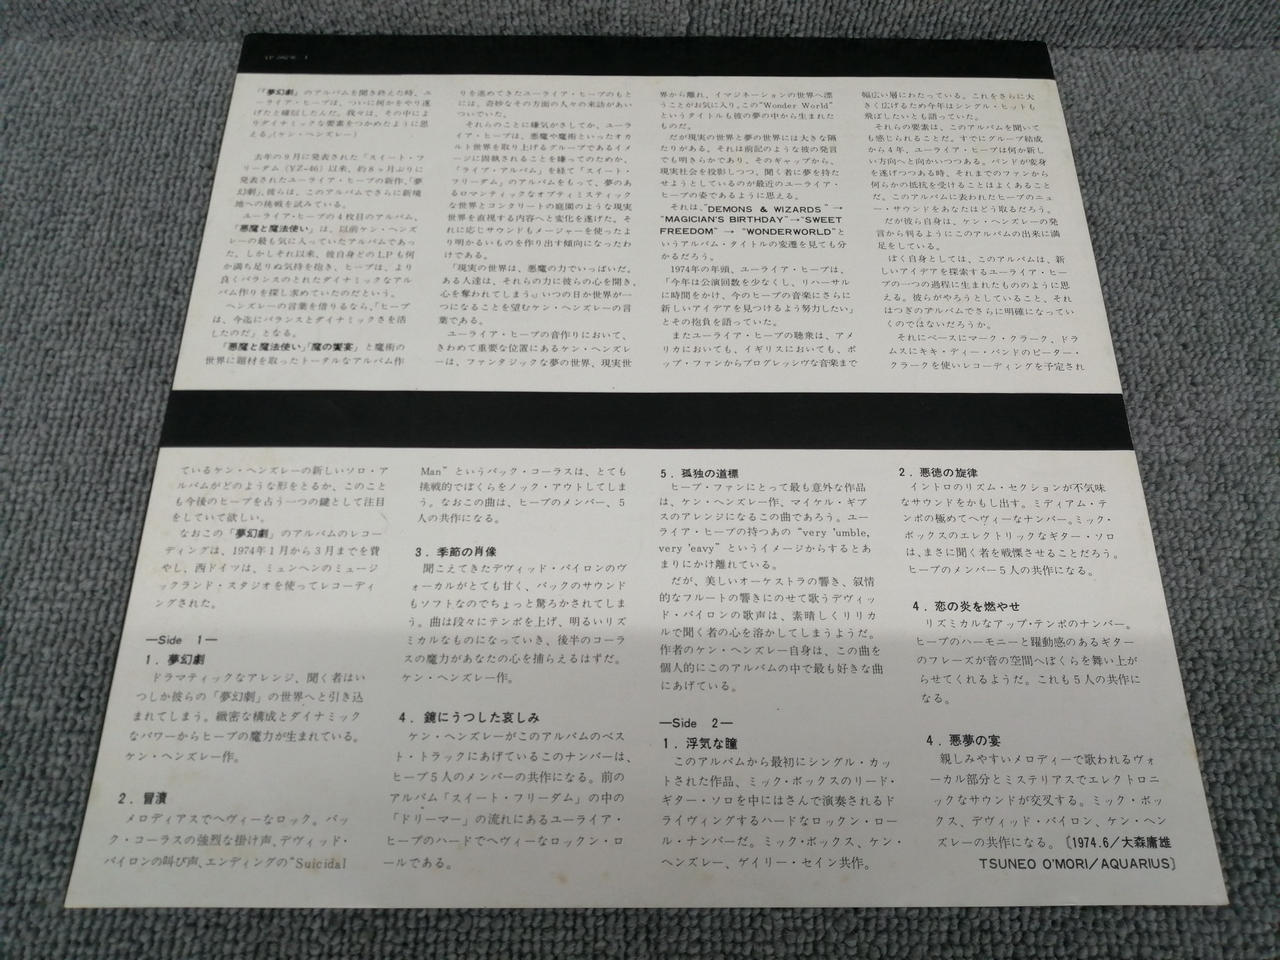 「夢幻劇」のアルバムを聞き終えた時、ユ
ーライア・ヒープは、ついに何かをやり遂
げたと確信したんだ。我々は、その中によ
りダイナミックな要素をつかめたように思
える。(ケン・ヘンズレー)
去年の9月に発表された「スイート・フ
リーダム(YZ-46)以来、約8ヵ月ぶりに
発表されたユーライア・ヒープの新作、「夢
幻劇」彼らは、このアルバムでさらに新境
地への挑戦を試みている。
ユーライア・ヒープの4枚目のアルバム、
「悪魔と魔法使い」は、以前ケン・ヘンズ
レーの最も気に入っていたアルバムであっ
た。しかしそれ以来、彼自身どのLPも何
か満ち足りぬ気持を抱き、ヒープは、より
良くバランスのとれたダイナミックなアル
バム作りを探し求めていたのだという。
ヘンズレーの言葉を借りるなら、「ヒープ
は、今迄にバランスとダイナミックさを活
したのだ」となる。
「悪魔と魔法使い」「魔の饗宴」と魔術の
世界に題材を取ったトータルなアルバム作
りを進めてきたユーライア・ヒープのもと
には、奇妙なその方面の人々の来訪があい
ついでいた。
それらのことに嫌気がさしてか、ユーラ
イア・ヒープは、悪魔や魔術といったオカ
ルト世界を取り上げるグループであるイメ
ージに固執されることを嫌ってのためか、
「ライブ・アルバム」を経て「スイート・
フリーダム」のアルバムをもって、夢のあ
るロマンティックなオプティミスティック
な世界とコンクリートの庭園のような現実
世界を直視する内容へと変化を遂げた。そ
れに応じサウンドもメージャーを使ったよ
り明かるいものを作り出す傾向になったわ
けである。
「現実の世界は、悪魔の力でいっぱいだ。
ある人達は、それらの力に彼らの心を開き、
心を奪われてしまう。」いつの日か世界が一
つになることを望むケン・ヘンズレーの言
葉である。
ユーライア・ヒープの音作りにおいて、
きわめて重要な位置にあるケン・ヘンズレ
ーは、ファンタジックな夢の世界、現実世
界から離れ、イマジネーションの世界へ漂
うことがお気に入り。この“Wonder World”
というタイトルも彼の夢の中から生まれた
ものだ。
だが現実の世界と夢の世界には大きな隔
たりがある。それは前記のような彼の発言
でも明きらかであり、そのギャップから、
現実社会を投影しつつ、聞く者に夢を持た
せようとしているのが最近のユーライア・
ヒープの姿であるように思える。
それは、“DEMONS & WIZARDS” →
“MAGICIAN'S BIRTHDAY”→“SWEET
FREEDOM” → “WONDERWORLD”と
いうアルバム・タイトルの変遷を見ても分
かるだろう。
1974年の年頭、ユーライア・ヒープは、
「今年は公演回数を少なくし、リハーサル
に時間をかけ、今のヒープの音楽にさらに
新しいアイデアを見つけるよう努力したい」
とその抱負を語っていた。
またユーライア・ヒープの聴衆は、アメ
リカにおいても、イギリスにおいても、ポ
ップ・ファンからプログレッシヴな音楽まで
幅広い層にわたっている。これをさらに大
きく広げるため今年はシングル・ヒットも
飛ばしたいとも語っていた。
それらの要素は、このアルバムを聞いて
も感じられることだ。すでにグループ結成
から4年、ユーライア・ヒープは何か新し
い方向へと向かいつつある。バンドが変身
を遂げつつある時、それまでのファンから
何らかの抵抗を受けることはよくあること
だ。このアルバムに表われたヒープのニュ
ー・サウンドをあなたはどう取るだろう。
だが彼ら自身は、ケン・ヘンズレーの発
言から判るようにこのアルバムの出来に満
足をしている。
ぼく自身としては、このアルバムは、新
しいアイデアを探索するユーライア・ヒー
プの一つの過程に生まれたもののように思
える。彼らがやろうとしていること、それ
はつぎのアルバムでさらに明確になってい
くのではないだろうか。
それにベースにマーク・クラーク、ドラ
ムスにキキ・ディー・バンドのピーター・
クラークを使いレコーディングを予定され
ているケン・ヘンズレーの新しいソロ・ア
ルバムがどのような形をとるか、このこと
も今後のヒープを占う一つの鍵として注目
をしていて欲しい。
なおこの「夢幻劇」のアルバムのレコー
ディングは、1974年1月から3月までを費
やし、西ドイツは、ミュンヘンのミュージ
ックランド・スタジオを使ってレコーディ
ングされた。
—Side 1—
1．夢幻劇
ドラマティックなアレンジ、聞く者はい
つしか彼らの「夢幻劇」の世界へと引き込
まれてしまう。緻密な構成とダイナミック
なパワーからヒープの魔力が生まれている。
ケン・ヘンズレー作。
2．冒瀆
メロディアスでヘヴィーなロック。バッ
ク・コーラスの強烈な掛け声、デヴィッド・
バイロンの叫び声、エンディングの“Suicidal
Man”というバック・コーラスは、とても
挑戦的でぼくらをノック・アウトしてしま
う。なおこの曲は、ヒープのメンバー、5
人の共作になる。
3．季節の肖像
聞こえてきたデヴィッド・バイロンのヴ
ォーカルがとても甘く、バックのサウンド
もソフトなのでちょっと驚ろかされてしま
う。曲は段々にテンポを上げ、明るいリズ
ミカルなものになっていき、後半のコーラ
スの魔力があなたの心を捕らえるはずだ。
ケン・ヘンズレー作。
4．鏡にうつした哀しみ
ケン・ヘンズレーがこのアルバムのベス
ト・トラックにあげているこのナンバーは、
ヒープ5人のメンバーの共作になる。前の
アルバム「スイート・フリーダム」の中の
「ドリーマー」の流れにあるユーライア・
ヒープのハードでヘヴィーなロックン・ロ
ールである。
5．孤独の道標
ヒープ・ファンにとって最も意外な作品
は、ケン・ヘンズレー作、マイケル・ギブ
スのアレンジになるこの曲であろう。ユー
ライア・ヒープの持つあの“very 'umble,
very 'eavy”というイメージからするとあ
まりにかけ離れている。
だが、美しいオーケストラの響き、叙情
的なフルートの響きにのせて歌うデヴィッ
ド・バイロンの歌声は、素晴しくリリカ
ルで聞く者の心を溶かしてしまうようだ。
作者のケン・ヘンズレー自身は、この曲を
個人的にこのアルバムの中で最も好きな曲
にあげている。
—Side 2—
1．浮気な瞳
このアルバムから最初にシングル・カッ
トされた作品、ミック・ボックスのリード・
ギター・ソロを中にはさんで演奏されるド
ライヴィングするハードなロックン・ロー
ル・ナンバーだ。ミック・ボックス、ケン・
ヘンズレー、ゲイリー・セイン共作。
2．悪徳の旋律
イントロのリズム・セクションが不気味
なサウンドをかもし出す。ミディアム・テ
ンポの極めてヘヴィーなナンバー。ミック・
ボックスのエレクトリックなギター・ソロ
は、まさに聞く者を戦慄させることだろう。
ヒープのメンバー5人の共作になる。
4．恋の炎を燃やせ
リズミカルなアップ・テンポのナンバー。
ヒープのハーモニーと躍動感のあるギター
のフレーズが音の空間へぼくらを舞い上が
らせてくれるようだ。これも5人の共作に
なる。
4．悪夢の宴
親しみやすいメロディーで歌われるヴォ
ーカル部分とミステリアスでエレクトロニ
ックなサウンドが交叉する。ミック・ボッ
クス、デヴィッド・バイロン、ケン・ヘン
ズレーの共作になる。〔1974.6／大森庸雄
TSUNEO O'MORI／AQUARIUS〕